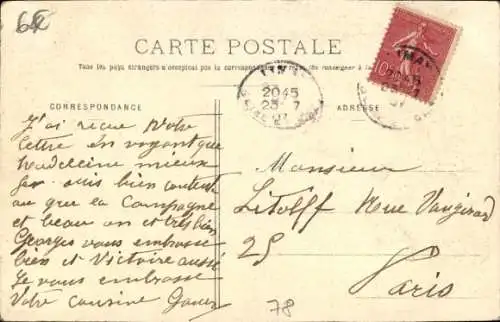 6
CARTE POSTALE
Tous les pays étrangers n'acceptent pas la correspondance
se renseigner à la
CORRESPONDANCE
ADRESSE
10
2045
23 - 7
07
J'ai reçue Votre
lettre en voyant que
Madeleine mieux
suis bien contente
que la Campagne
et beau on et très bien
Georges vous embrasse
bien et Victoire aussi
Je vous embrasse
Votre cousine
Monsieur
Litolff Rue Vaugirard
25
Paris
78